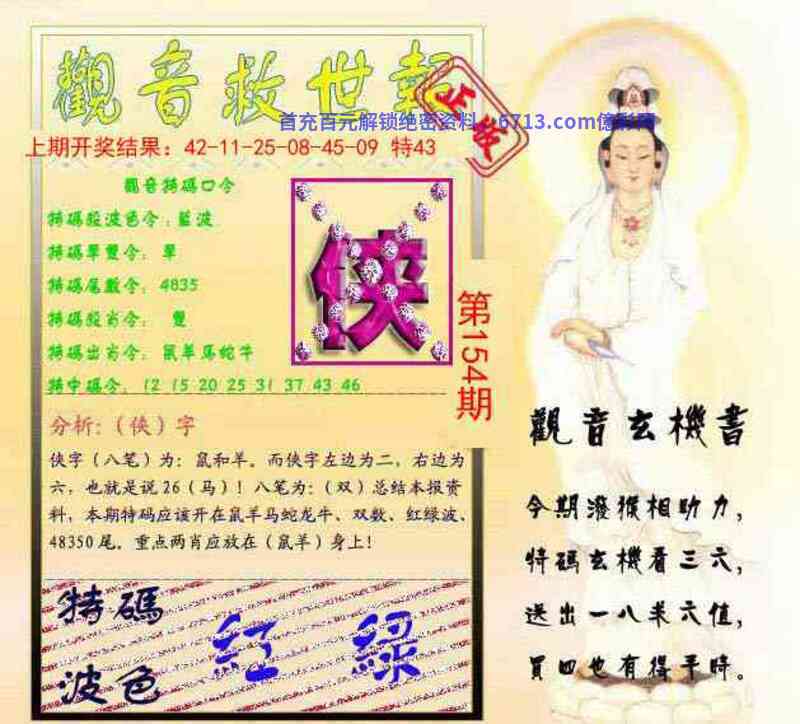 觀音救世報
正版
首充百元解锁绝密资料:6713.com億彩网
上期开奖结果：42-11-25-08-45-09 特43
觀音特碼口令
特碼殺波色令：藍波
特碼單雙令：單
特碼尾數令：4835
特碼殺肖令： 雙
特碼出肖令：鼠羊馬蛇牛
特中碼令：12 15 20 25 31 37 43 46
俠
第154期
分析:（俠）字
俠字（八笔）为：鼠和羊。而俠字左边为二，右边为
六，也就是说26（马）！八笔为：（双）总结本报资
料，本期特码应该开在鼠羊马蛇龙牛、双数、红绿波、
48350尾。重点两肖应放在（鼠羊）身上！
特碼
波色
紅 綠
觀音玄機書
今期潑猴相助力，
特碼玄機看三六，
送出一八求六值，
買四也有得平時。